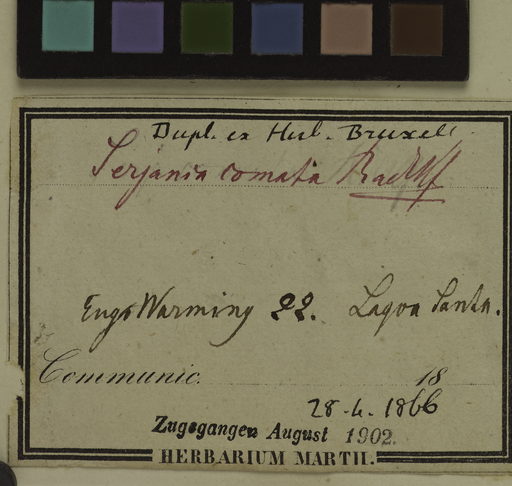 Dupl. ex Herb. Bruxell.
Serjania comata Radlkf
Eug. Warming 22. Lagoa Santa.
Communic. 18
28-4. 1866
Zugegangen August 1902.
HERBARIUM MARTII.